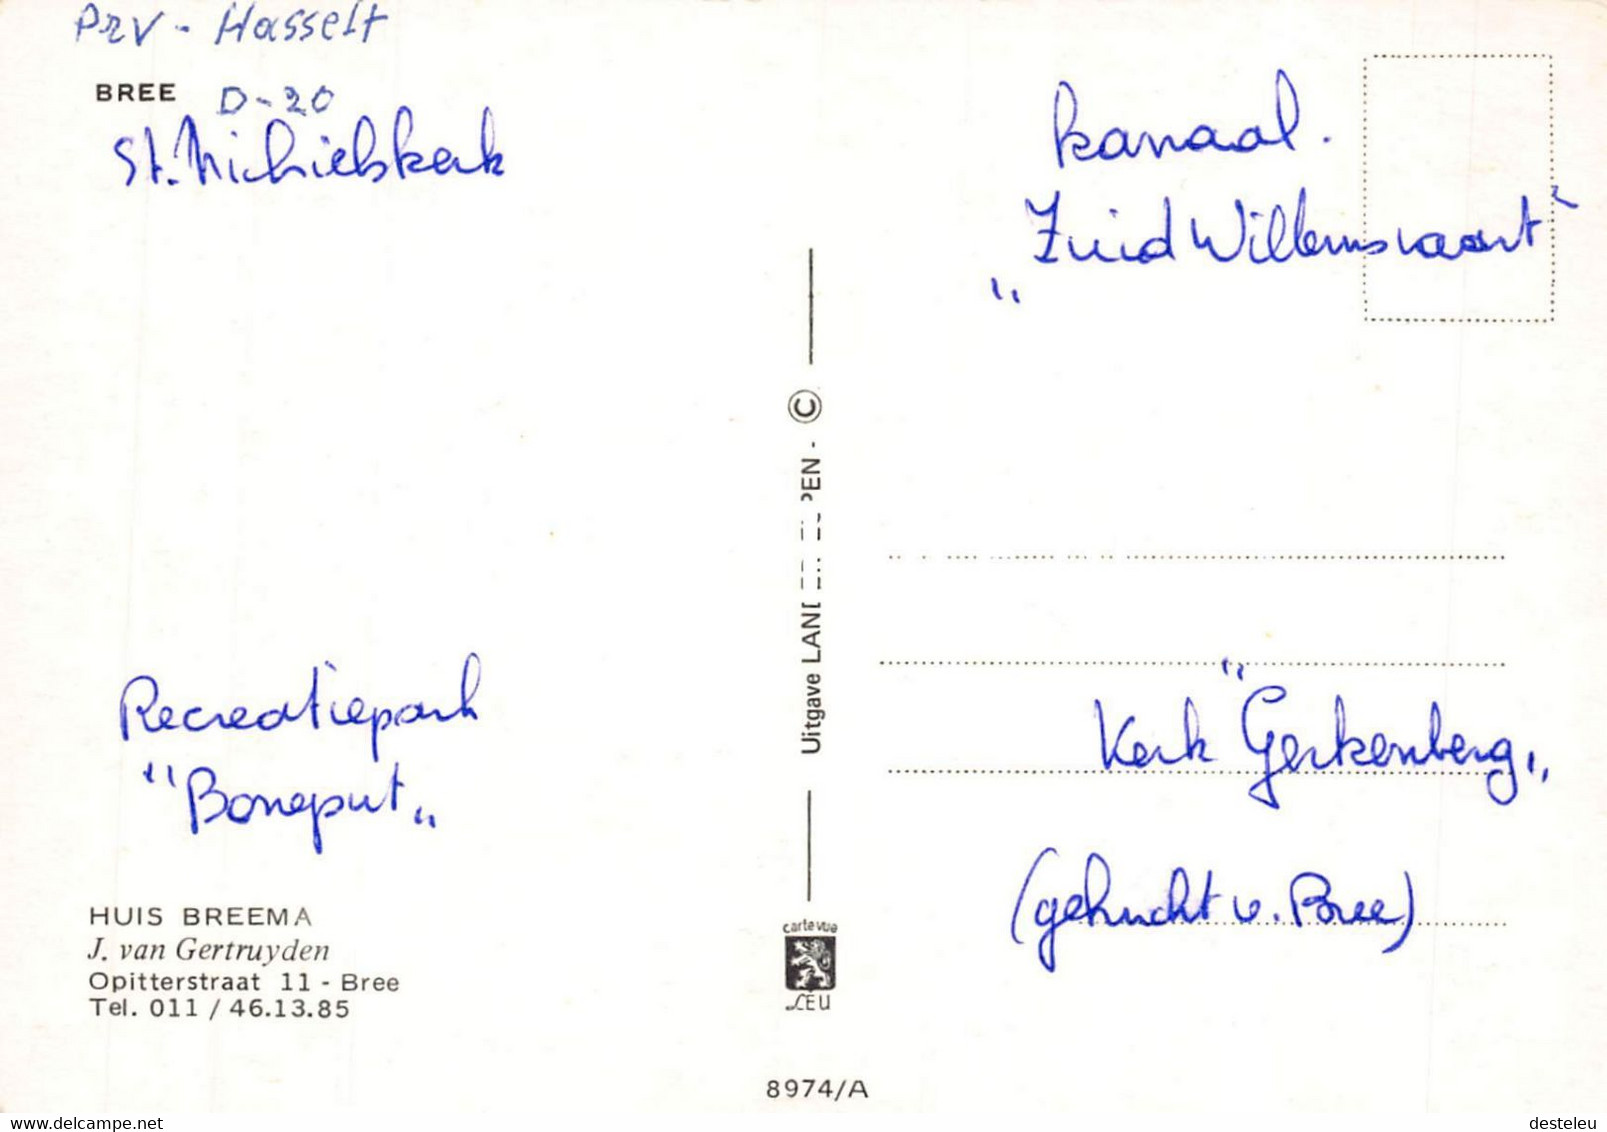 Prv - Hasselt
BREE D-20
St. Michielskerk
kanaal.
„Zuid Willemsvaart"
Uitgave LAN PEN - ©
Recreatiepark
"Boneput„
"Kerk Gerkenberg„
(gehucht v. Bree)
HUIS BREEMA
J. van Gertruyden
Opitterstraat 11 - Bree
Tel. 011 / 46.13.85
carte vue
LÉU
8974/A
www.delcampe.net
desteleu